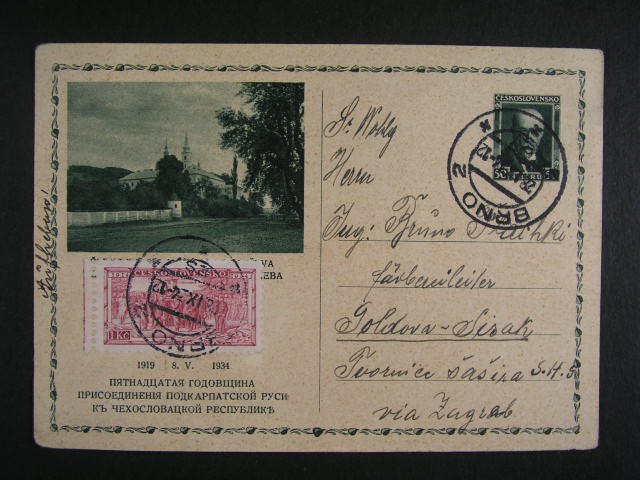 Sr. Wohlg
Herrn
Ing. Bruno
Färbereileiter
Goldova-Sisak
Tvornica šešira S.H.S
via Zagreb
ČESKOSLOVENSKO
50
BRNO 2
VA
ЕВА
ČESKOSLOVENSKO
1 Kč
BRNO 2
1919 8. V. 1934
ПЯТНАДЦАТАЯ ГОДОВЩИНА
ПРИСОЕДИНЕНІЯ ПОДКАРПАТСКОЙ РУСИ
КЪ ЧЕХОСЛОВАЦКОЙ РЕСПУБЛИКѢ